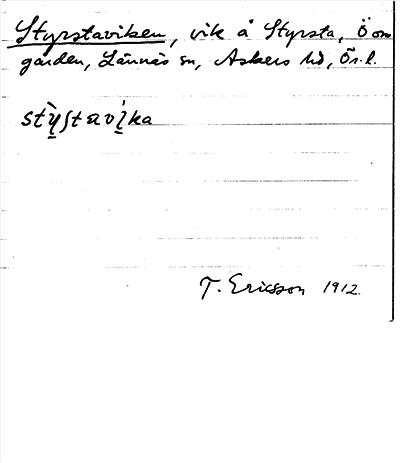 Styrstaviken, vik å Styrsta, Ö om
gården, Lännäs sn, Askers hd, Ör. l.
stỳstavíka
T. Ericsson 1912.